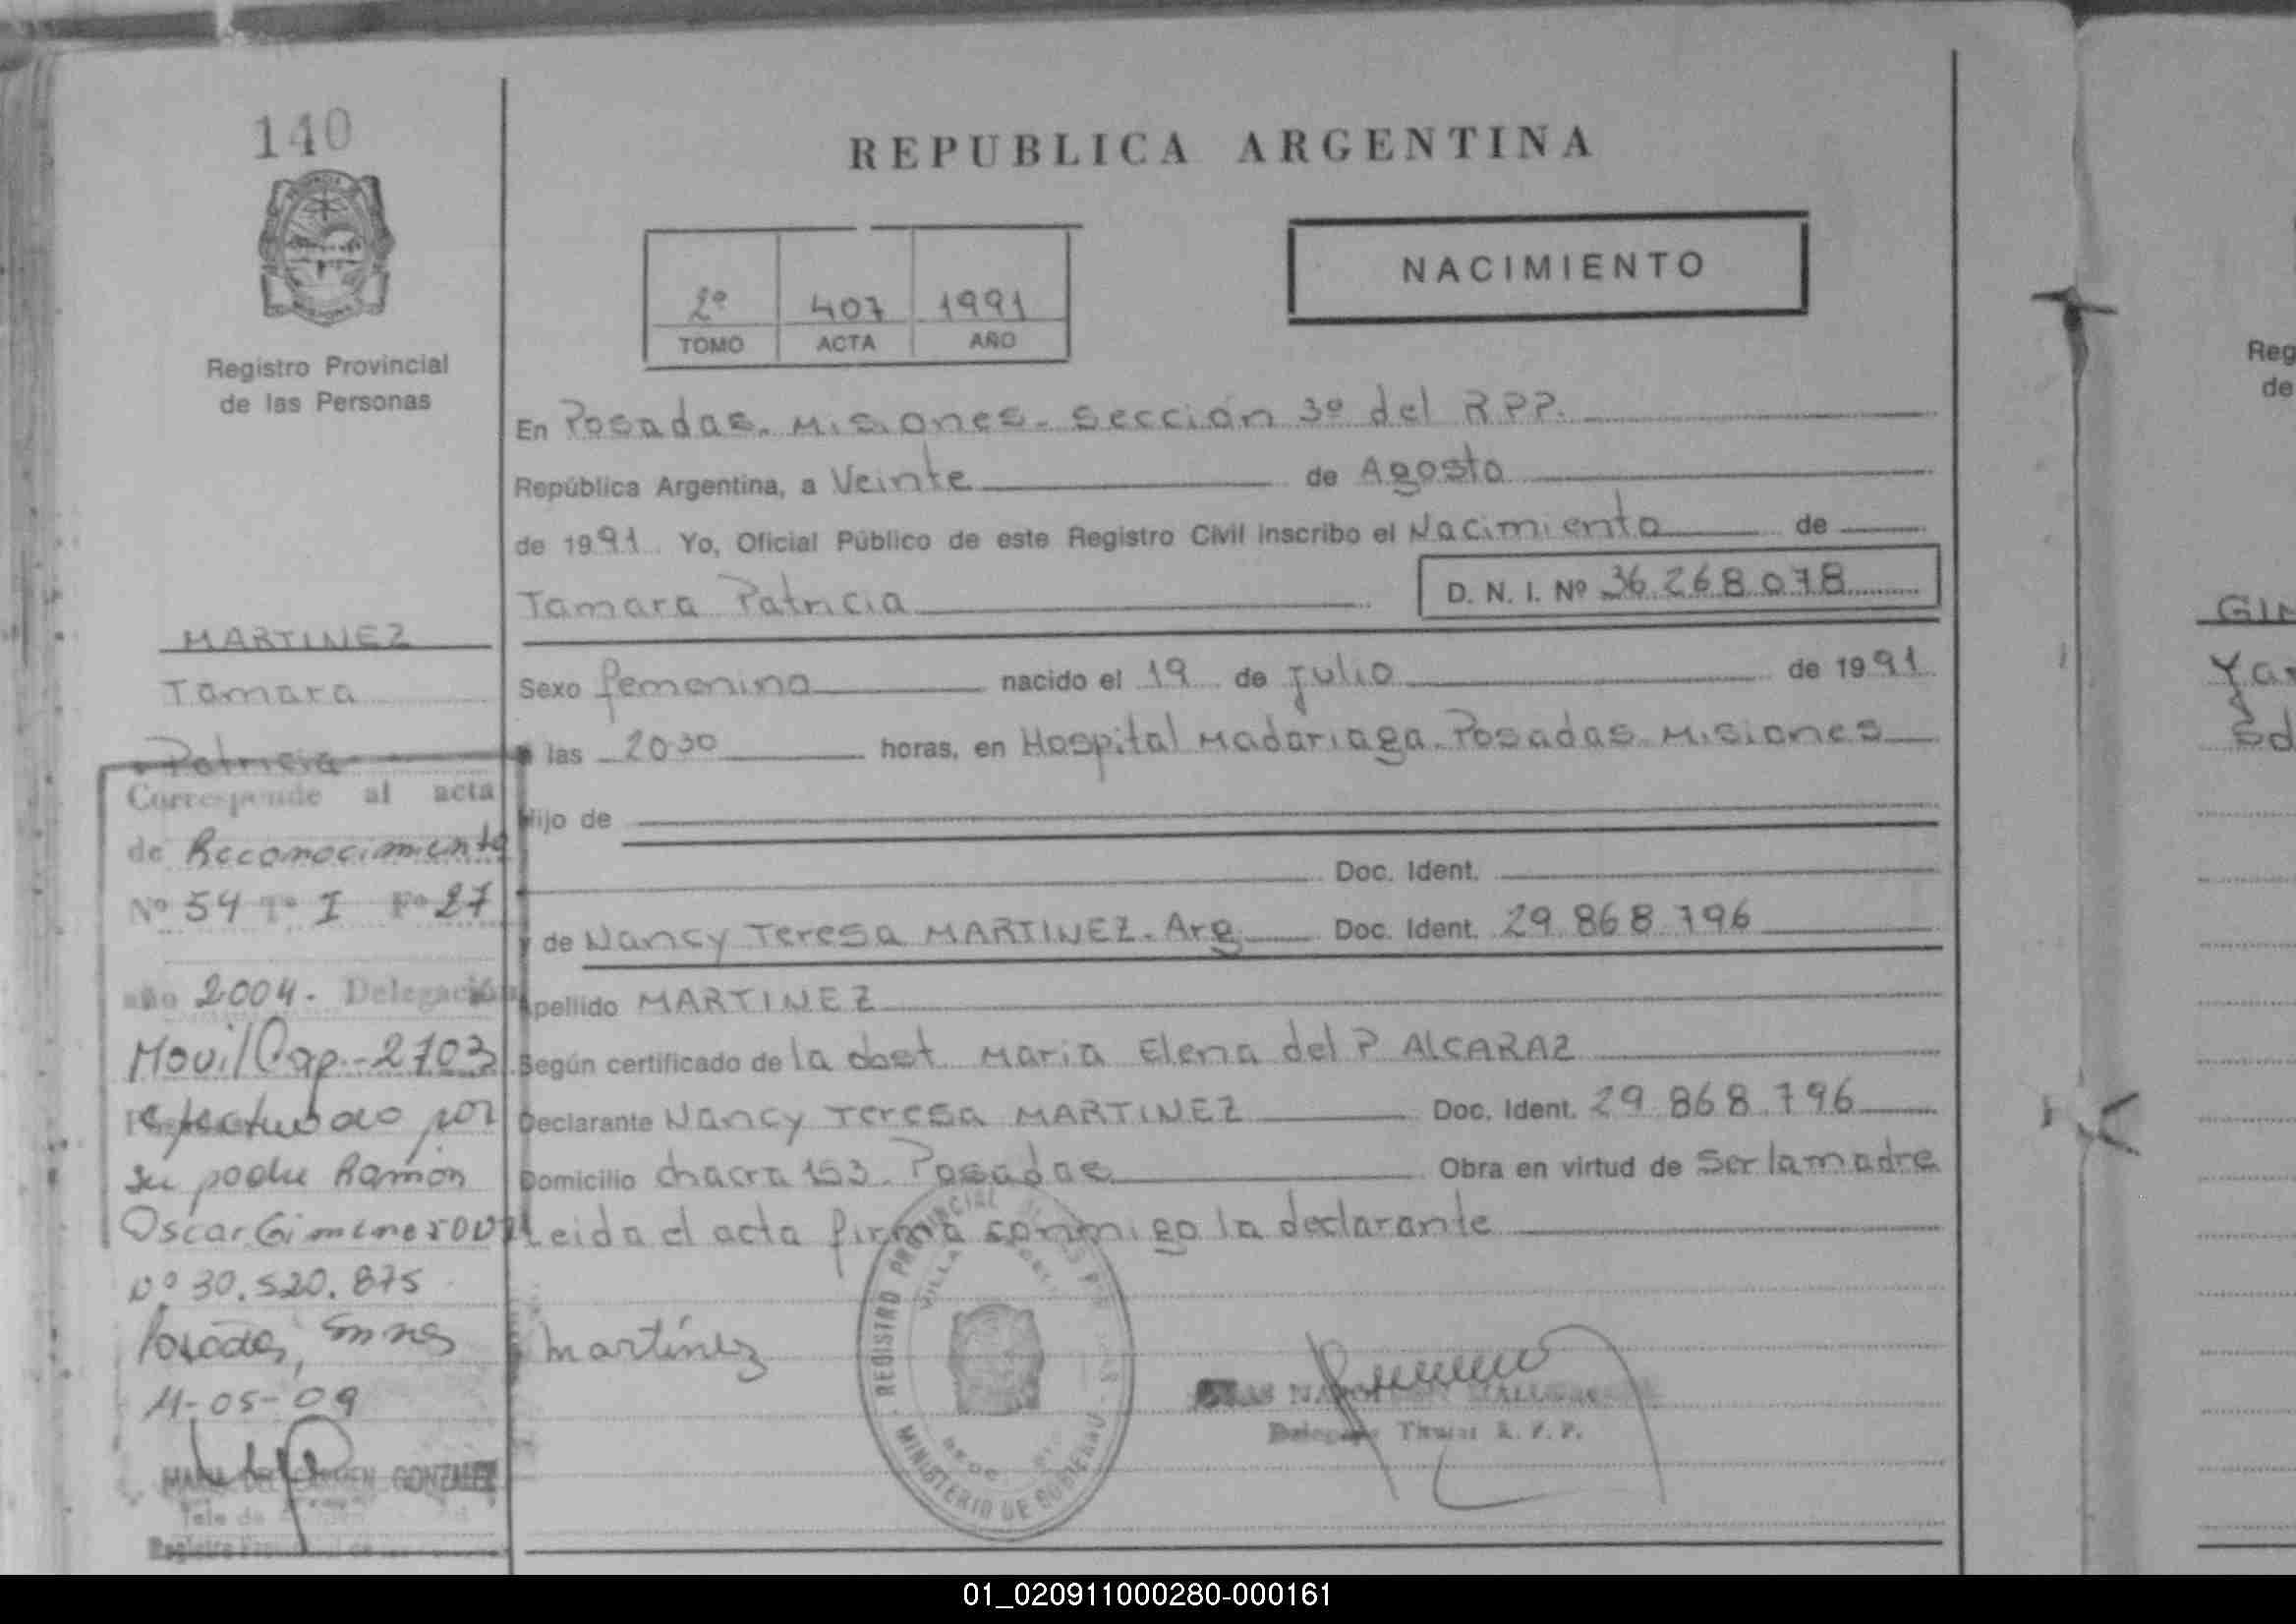 140
REPUBLICA ARGENTINA
NACIMIENTO
2º 407 1991
TOMO ACTA AÑO
Registro Provincial
de las Personas
En Posadas. Misiones. Sección 3º del RPP.
República Argentina, a Veinte de Agosto
de 1991 Yo, Oficial Público de este Registro Civil inscribo el Nacimiento de
Tamara Patricia D. N. I. Nº 36.268.078
MARTINEZ
Tamara
Patricia
Sexo femenino nacido el 19 de julio de 1991
las 20:30 horas, en Hospital Madariaga. Posadas Misiones
Hijo de
Doc. Ident.
y de Nancy Teresa MARTINEZ. Arg Doc. Ident. 29.868.796
Apellido MARTINEZ
Según certificado de la obst Maria Elena del P ALCARAZ
Declarante Nancy Teresa MARTINEZ Doc. Ident. 29.868.796
Domicilio chacra 153. Posadas Obra en virtud de Ser la madre
Leida el acta firma conmigo la declarante
martínez
REGISTRO PROVINCIAL
VILLA
MINISTERIO DE GOBIERNO
Titular R. P. P.
Corresponde al acta
de Reconocimiento
Nº 54 Tº I Fº 27
año 2004. Delegación
Movil Cap.-2703
efectuado por
su padre Ramón
Oscar Gimenez DNI
Nº 30.520.875
Posadas, Mnes
11-05-09
MARIA DEL CARMEN GONZALEZ
GIM
Reg
de
01_020911000280-000161